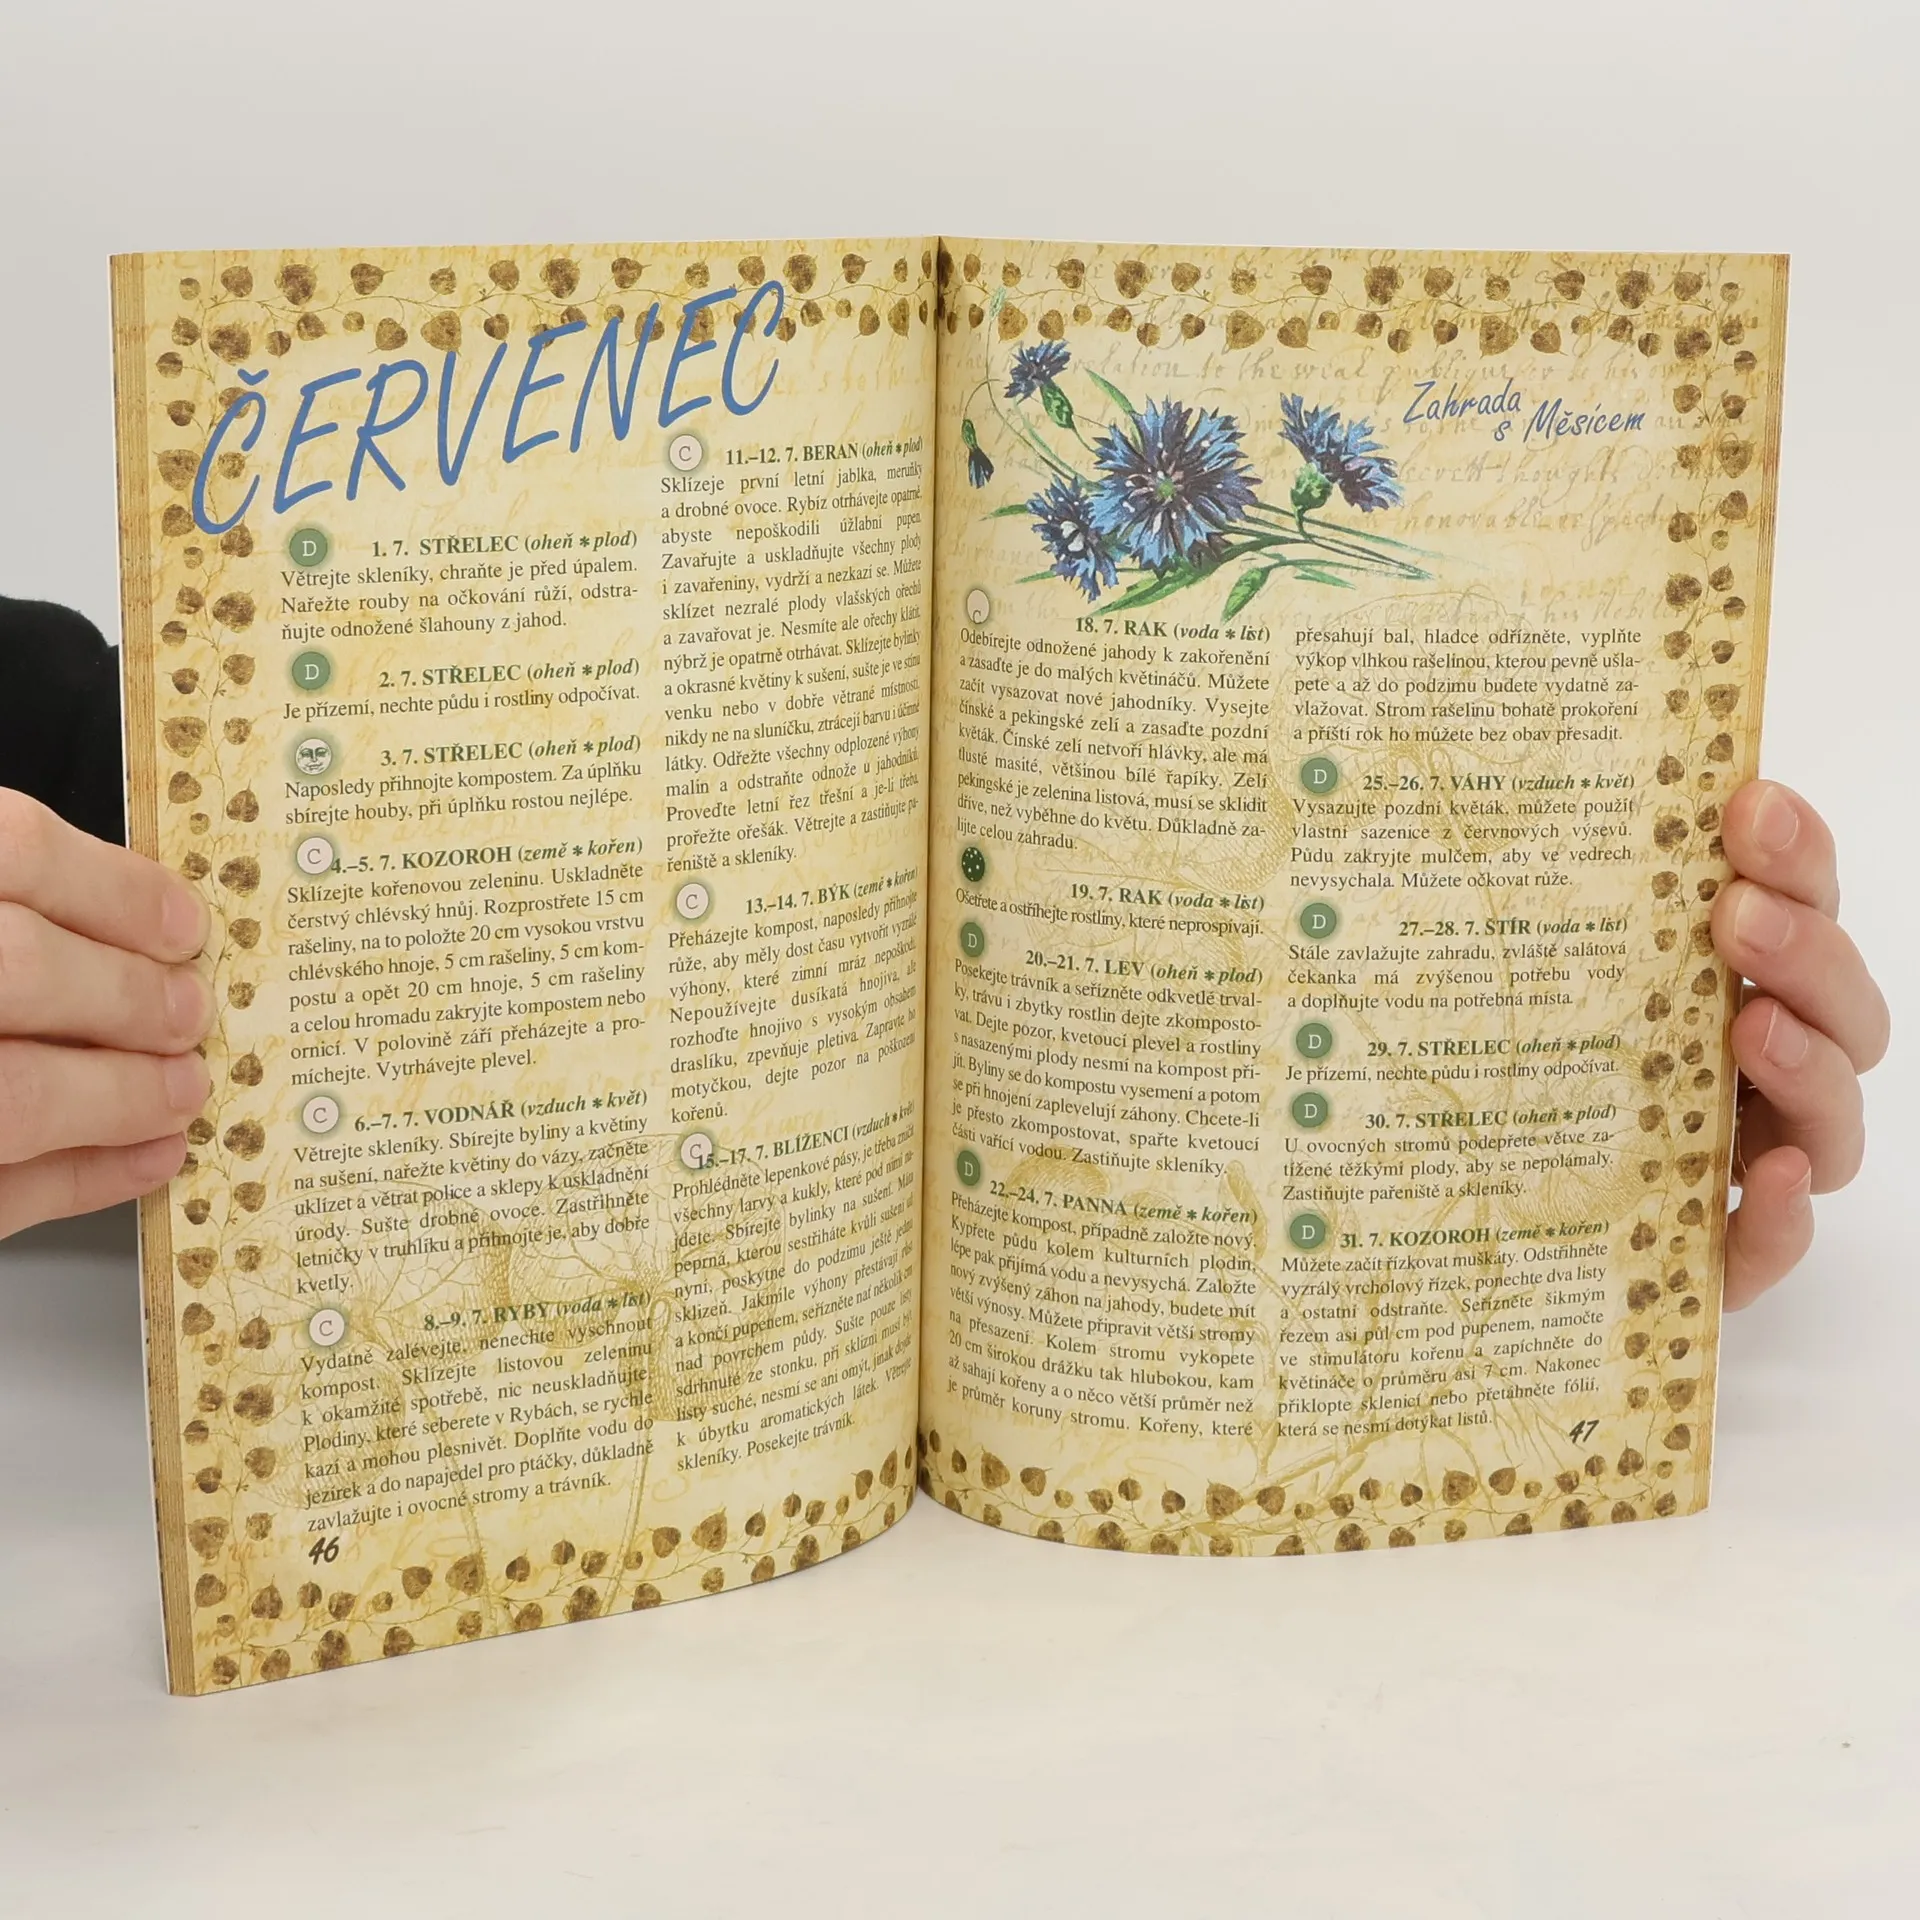 ČERVENEC
D
1. 7. STŘELEC (oheň * plod)
Větrejte skleníky, chraňte je před úpalem.
Nařežte rouby na očkování růží, odstra-
ňujte odnožené šlahouny z jahod.
D
2. 7. STŘELEC (oheň * plod)
Je přízemí, nechte půdu i rostliny odpočívat.
3. 7. STŘELEC (oheň * plod)
Naposledy přihnojte kompostem. Za úplňku
sbírejte houby, při úplňku rostou nejlépe.
C
4.–5. 7. KOZOROH (země * kořen)
Sklízejte kořenovou zeleninu. Uskladněte
čerstvý chlévský hnůj. Rozprostřete 15 cm
rašeliny, na to položte 20 cm vysokou vrstvu
chlévského hnoje, 5 cm rašeliny, 5 cm kom-
postu a opět 20 cm hnoje, 5 cm rašeliny
a celou hromadu zakryjte kompostem nebo
ornicí. V polovině září přeházejte a pro-
míchejte. Vytrhávejte plevel.
C
6.–7. 7. VODNÁŘ (vzduch * květ)
Větrejte skleníky. Sbírejte byliny a květiny
na sušení, nařežte květiny do vázy, začněte
uklízet a větrat police a sklepy k uskladnění
úrody. Sušte drobné ovoce. Zastřihněte
letničky v truhlíku a přihnojte je, aby dobře
kvetly.
C
8.–9. 7. RYBY (voda * list)
Vydatně zalévejte, nenechte vyschnout
kompost. Sklízejte listovou zeleninu
k okamžité spotřebě, nic neuskladňujte.
Plodiny, které seberete v Rybách, se rychle
kazí a mohou plesnivět. Doplňte vodu do
jezírek a do napajedel pro ptáčky, důkladně
zavlažujte i ovocné stromy a trávník.
46
C
11.–12. 7. BERAN (oheň * plod)
Sklízeje první letní jablka, meruňky
a drobné ovoce. Rybíz otrhávejte opatrně,
abyste nepoškodili úžlabní pupen.
Zavařujte a uskladňujte všechny plody
i zavařeniny, vydrží a nezkazí se. Můžete
sklízet nezralé plody vlašských ořechů
a zavařovat je. Nesmíte ale ořechy klátit,
nýbrž je opatrně otrhávat. Sklízejte bylinky
a okrasné květiny k sušení, sušte je ve stínu
venku nebo v dobře větrané místnosti,
nikdy ne na sluníčku, ztrácejí barvu i účinné
látky. Odřežte všechny odplozené výhony
malin a odstraňte odnože u jahodníků.
Proveďte letní řez třešní a je-li třeba,
prořežte ořešák. Větrejte a zastiňujte pa-
řeniště a skleníky.
C
13.–14. 7. BÝK (země * kořen)
Přeházejte kompost, naposledy přihnojte
růže, aby měly dost času vytvořit vyzrálé
výhony, které zimní mráz nepoškodí.
Nepoužívejte dusíkatá hnojiva, ale
rozhoďte hnojivo s vysokým obsahem
draslíku, zpevňuje pletiva. Zapravte ho
motyčkou, dejte pozor na poškození
kořenů.
C
15.–17. 7. BLÍŽENCI (vzduch * květ)
Prohlédněte lepenkové pásy, je třeba zničit
všechny larvy a kukly, které pod nimi na-
jdete. Sbírejte bylinky na sušení. Máta
peprná, kterou sestřiháte kvůli sušení už
nyní, poskytne do podzimu ještě jednu
sklizeň. Jakmile výhony přestávají růst
a končí pupenem, seřízněte nať několik cm
nad povrchem půdy. Sušte pouze listy
sdrhnuté ze stonku, při sklizni musí být
listy suché, nesmí se ani omýt, jinak dojde
k úbytku aromatických látek. Větrejte
skleníky. Posekejte trávník.
Zahrada
s Měsícem
C
18. 7. RAK (voda * list)
Odebírejte odnožené jahody k zakořenění
a zasaďte je do malých květináčů. Můžete
začít vysazovat nové jahodníky. Vysejte
čínské a pekingské zelí a zasaďte pozdní
květák. Čínské zelí netvoří hlávky, ale má
tlusté masité, většinou bílé řapíky. Zelí
pekingské je zelenina listová, musí se sklidit
dříve, než vyběhne do květu. Důkladně za-
lijte celou zahradu.
19. 7. RAK (voda * list)
Ošetřete a ostříhejte rostliny, které neprospívají.
D
20.–21. 7. LEV (oheň * plod)
Posekejte trávník a seřízněte odkvetlé trval-
ky, trávu i zbytky rostlin dejte zkomposto-
vat. Dejte pozor, kvetoucí plevel a rostliny
s nasazenými plody nesmí na kompost při-
jít. Byliny se do kompostu vysemení a potom
se při hnojení zaplevelují záhony. Chcete-li
je přesto zkompostovat, spařte kvetoucí
části vařící vodou. Zastiňujte skleníky.
D
22.–24. 7. PANNA (země * kořen)
Přeházejte kompost, případně založte nový.
Kypřete půdu kolem kulturních plodin,
lépe pak přijímá vodu a nevysychá. Založte
nový zvýšený záhon na jahody, budete mít
větší výnosy. Můžete připravit větší stromy
na přesazení. Kolem stromu vykopete
20 cm širokou drážku tak hlubokou, kam
až sahají kořeny a o něco větší průměr než
je průměr koruny stromu. Kořeny, které
přesahují bal, hladce odřízněte, vyplňte
výkop vlhkou rašelinou, kterou pevně ušla-
pete a až do podzimu budete vydatně za-
vlažovat. Strom rašelinu bohatě prokoření
a příští rok ho můžete bez obav přesadit.
D
25.–26. 7. VÁHY (vzduch * květ)
Vysazujte pozdní květák, můžete použít
vlastní sazenice z červnových výsevů.
Půdu zakryjte mulčem, aby ve vedrech
nevysychala. Můžete očkovat růže.
D
27.–28. 7. ŠTÍR (voda * list)
Stále zavlažujte zahradu, zvláště salátová
čekanka má zvýšenou potřebu vody
a doplňujte vodu na potřebná místa.
D
29. 7. STŘELEC (oheň * plod)
Je přízemí, nechte půdu i rostliny odpočívat.
D
30. 7. STŘELEC (oheň * plod)
U ovocných stromů podepřete větve za-
tížené těžkými plody, aby se nepolámaly.
Zastiňujte pařeniště a skleníky.
D
31. 7. KOZOROH (země * kořen)
Můžete začít řízkovat muškáty. Odstřihněte
vyzrálý vrcholový řízek, ponechte dva listy
a ostatní odstraňte. Seřízněte šikmým
řezem asi půl cm pod pupenem, namočte
ve stimulátoru kořenu a zapíchněte do
květináče o průměru asi 7 cm. Nakonec
přiklopte sklenicí nebo přetáhněte fólií,
která se nesmí dotýkat listů.
47